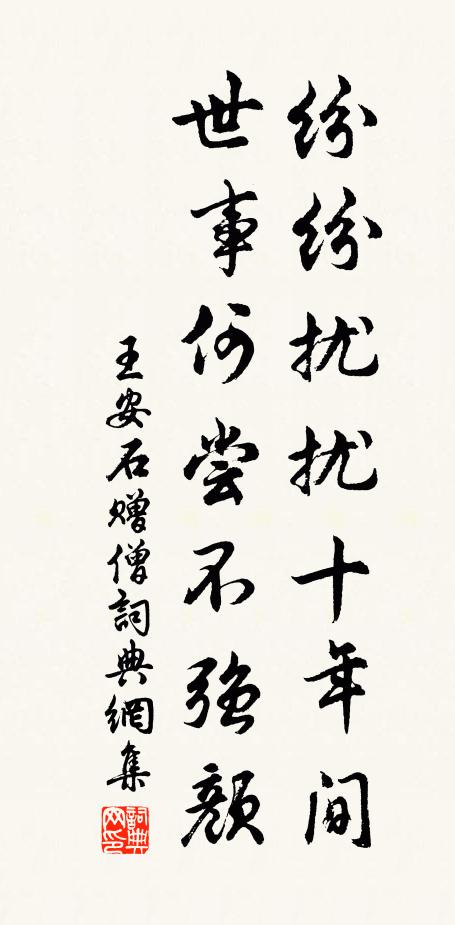 纷纷扰扰十年间
世事何尝不强颜
王安石赠僧詞典網集
詞典网印